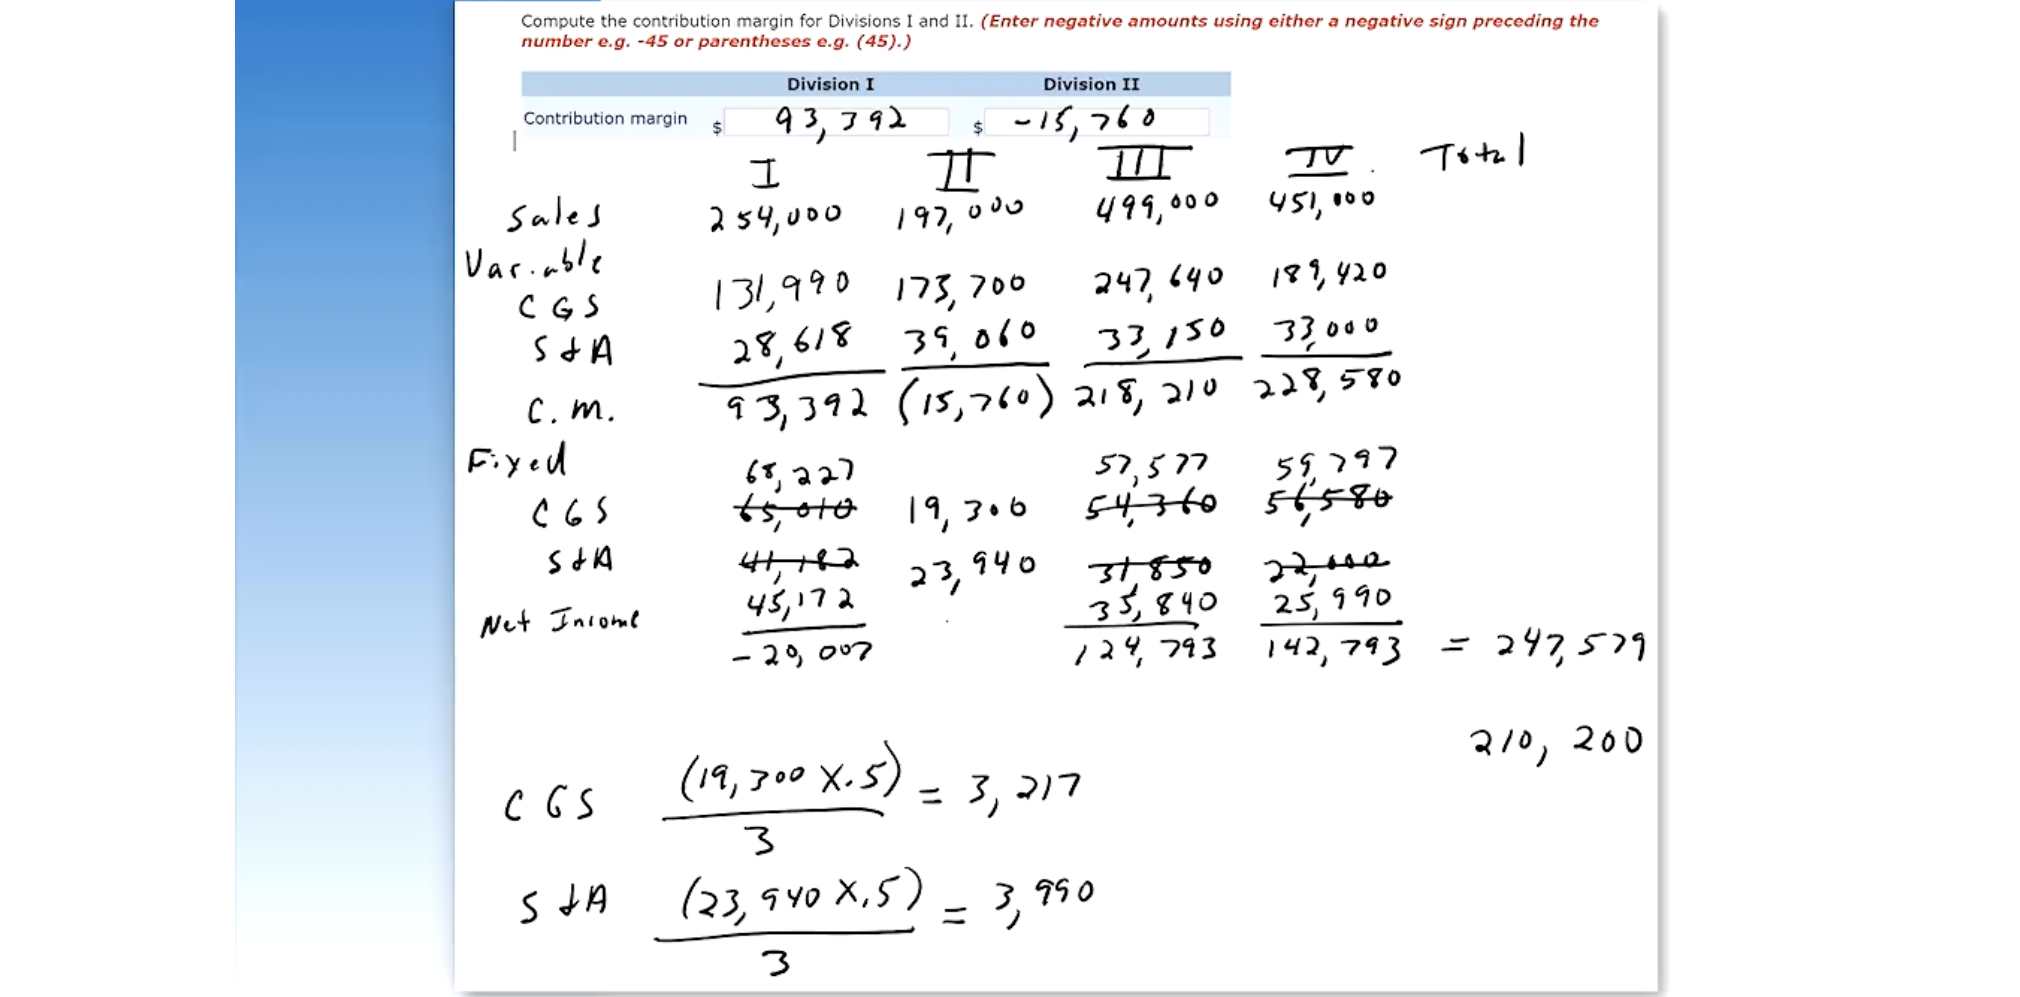 Compute the contribution margin for Divisions I and II. (Enter negative amounts using either a negative sign preceding the
number e.g. -45 or parentheses e.g. (45).)
Division I Division II
Contribution margin $ 93,392 $ -15,760
I II III IV Total
Sales 254,000 197,000 499,000 451,000
Variable
CGS 131,990 173,700 247,640 189,420
S&A 28,618 39,060 33,150 33,000
C.M. 93,392 (15,760) 218,210 228,580
Fixed 68,227 57,577 59,797
CGS 65,010 19,300 54,360 56,580
S&A 41,182 23,940 31,850 22,000
45,172 35,840 25,990
Net Income -20,007 124,793 142,793 = 247,579
210,200
CGS (19,300 X .5) = 3,217
3
S&A (23,940 X .5) = 3,990
3